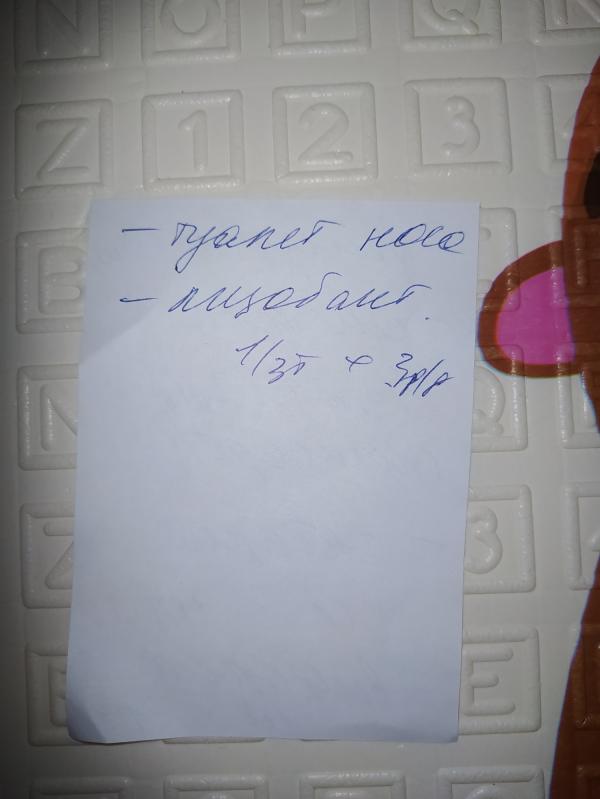 N O P Q
Z 1 2 3
- туалет носа
- лизобакт.
1/3т × 3р/д
B
N Q
Z 3
E E